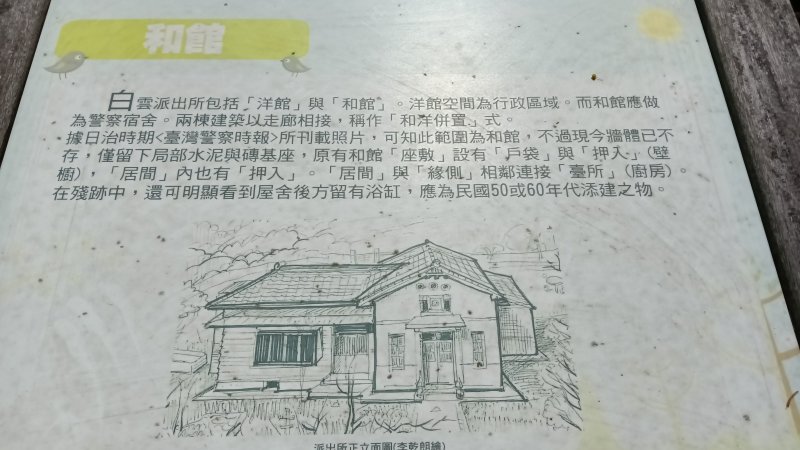 和館
白雲派出所包括「洋館」與「和館」。洋館空間為行政區域。而和館應做
為警察宿舍。兩棟建築以走廊相接，稱作「和洋併置」式。
據日治時期<臺灣警察時報>所刊載照片，可知此範圍為和館，不過現今牆體已不
存，僅留下局部水泥與磚基座，原有和館「座敷」設有「戶袋」與「押入」（壁
櫥），「居間」內也有「押入」。「居間」與「緣側」相鄰連接「臺所」（廚房）。
在殘跡中，還可明顯看到屋舍後方留有浴缸，應為民國50或60年代添建之物。
派出所正立面圖(李乾朗繪)